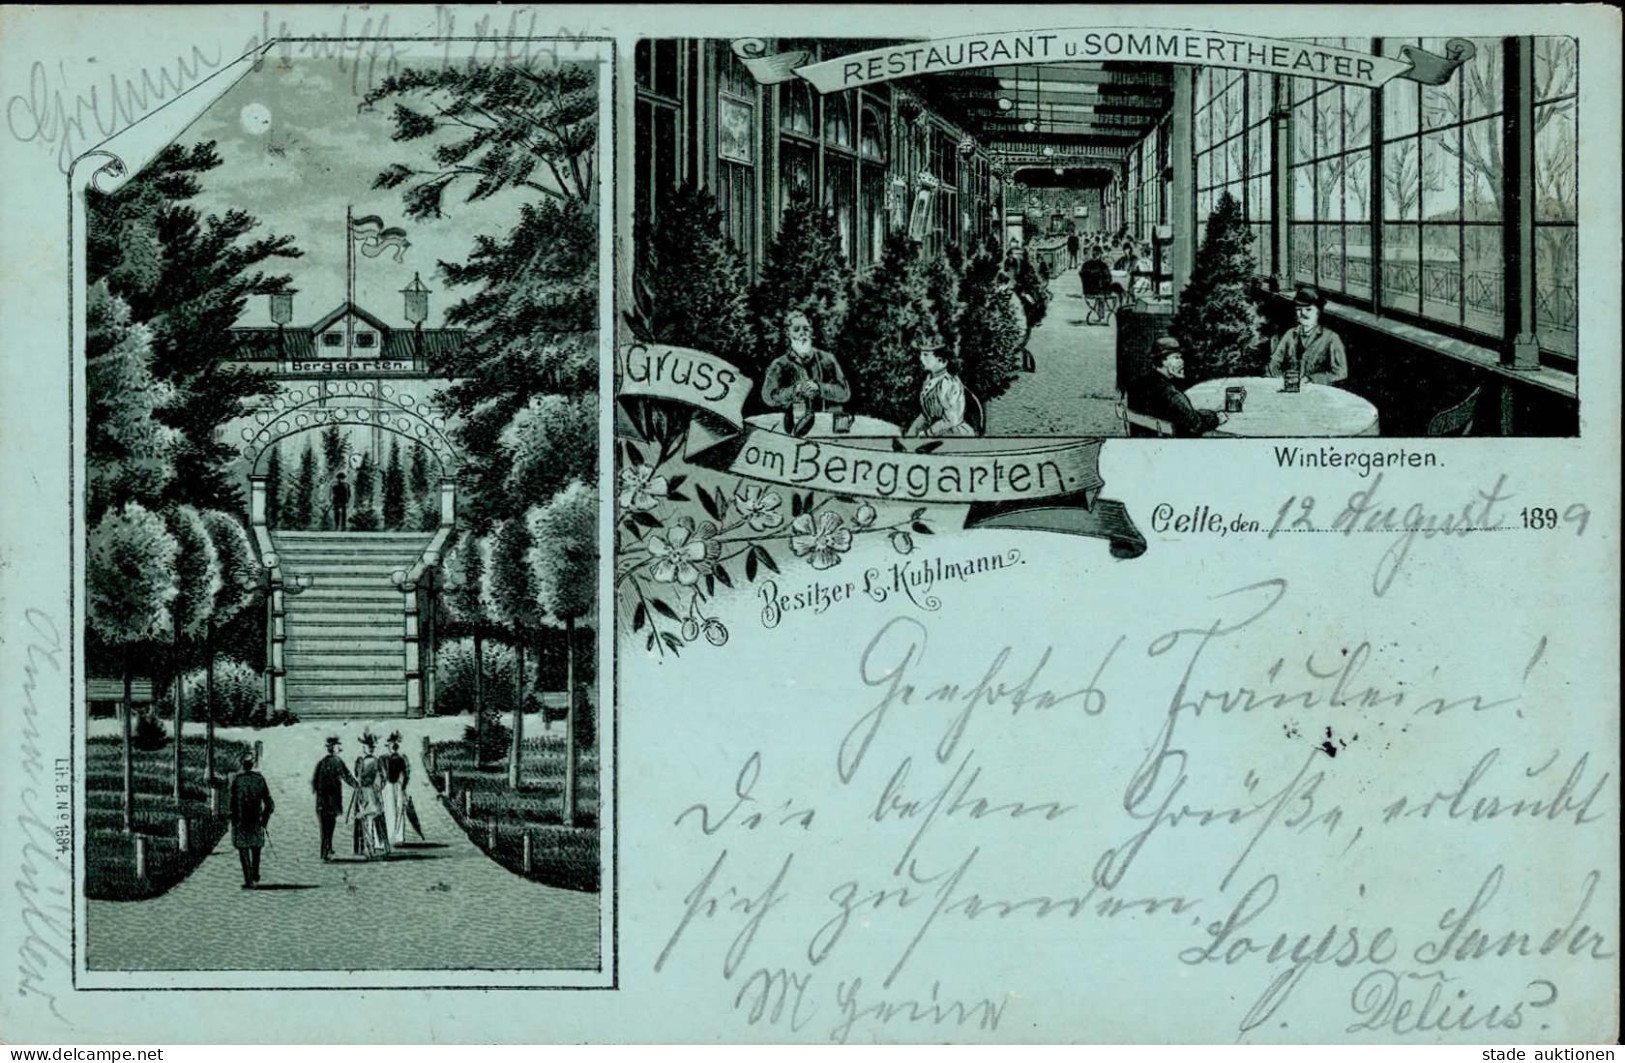 Grimm
RESTAURANT u. SOMMERTHEATER
Berggarten.
Gruss
vom Berggarten.
Wintergarten.
Celle, den 12 August 1899
Besitzer L. Kuhlmann.
Geehrtes Fräulein!
Die besten Grüße, erlaubt
sich zu senden
Louise Sander
M Heine
Delius.
Lit. B. No 1684.
stade auktionen